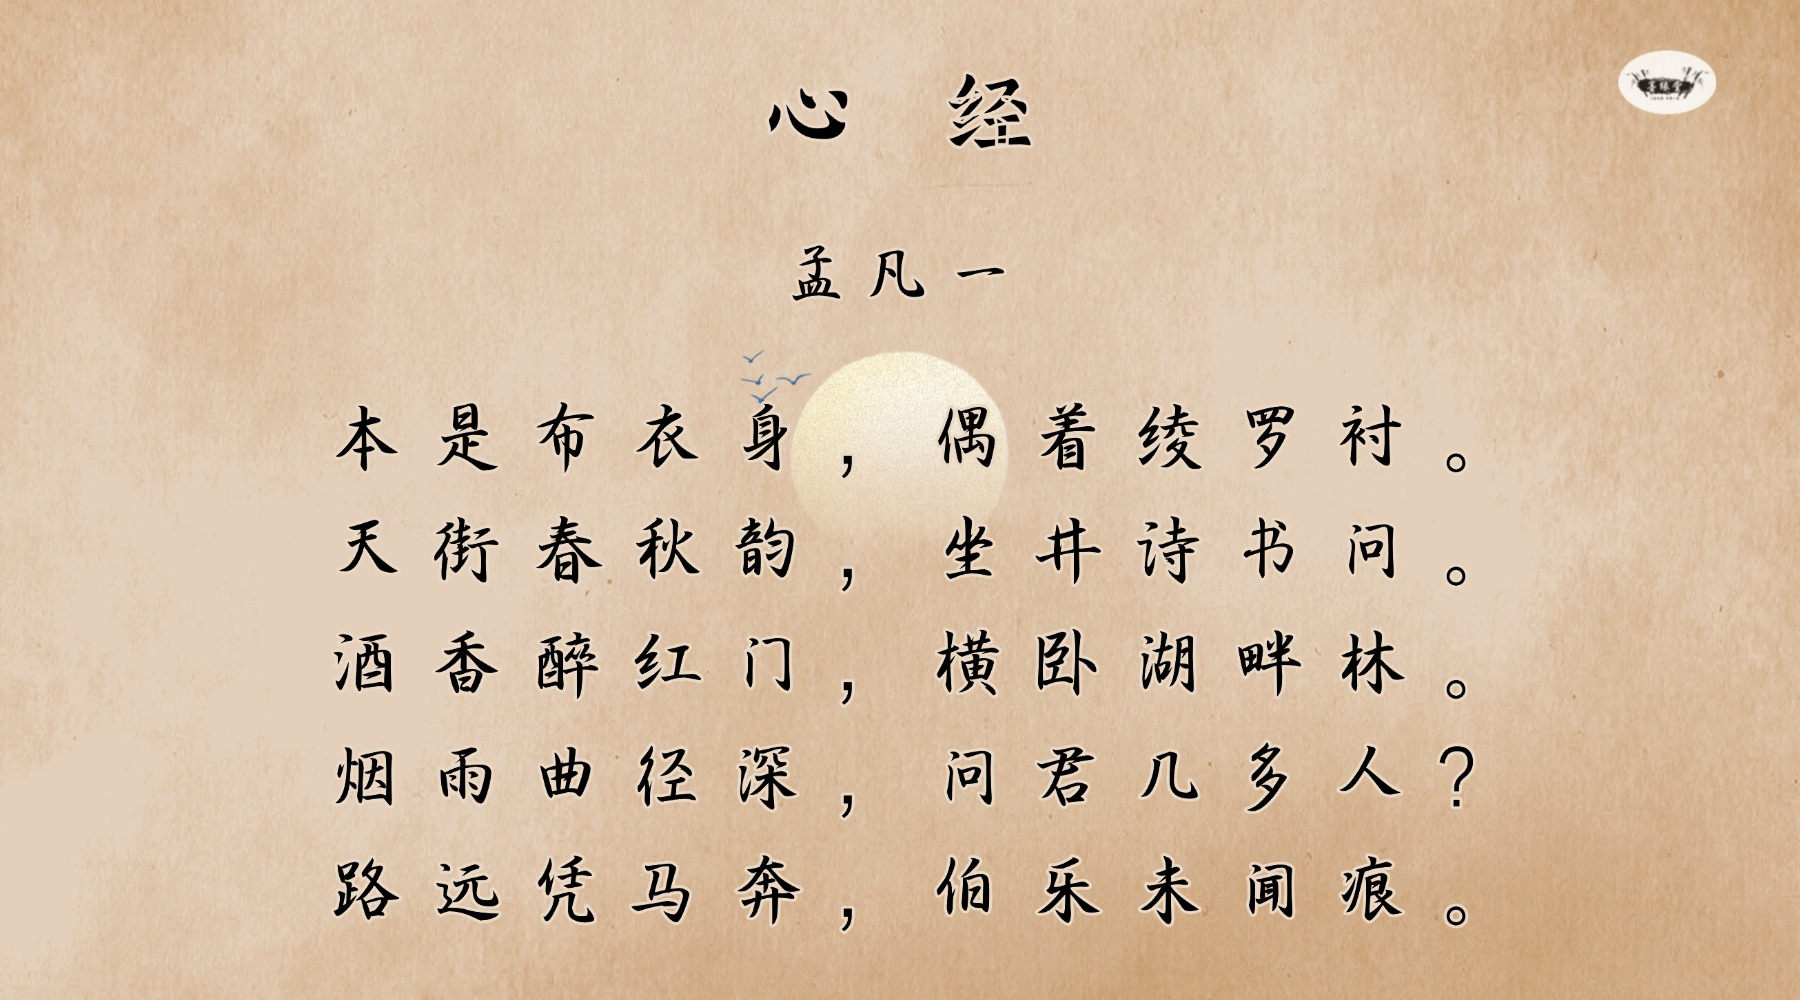 心经
孟凡一
本是布衣身，偶着绫罗衬。
天街春秋韵，坐井诗书问。
酒香醉红门，横卧湖畔林。
烟雨曲径深，问君几多人？
路远凭马奔，伯乐未闻痕。